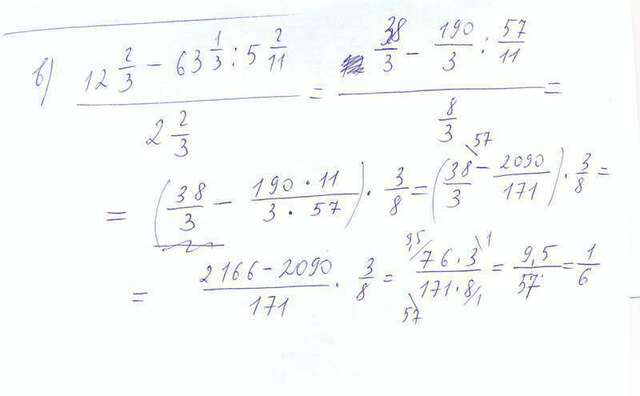 в) (12 2/3 − 63 1/3 : 5 2/11) / (2 2/3) = (38/3 − 190/3 : 57/11) / (8/3) =
= (38/3 − (190 · 11)/(3 · 57)) · 3/8 = (38/3 \57 − 2090/171) · 3/8 =
= (2166 − 2090)/171 · 3/8 = (9,5/ 76 · 3 \1)/(57\ 171 · 8 /1) = 9,5/57 = 1/6